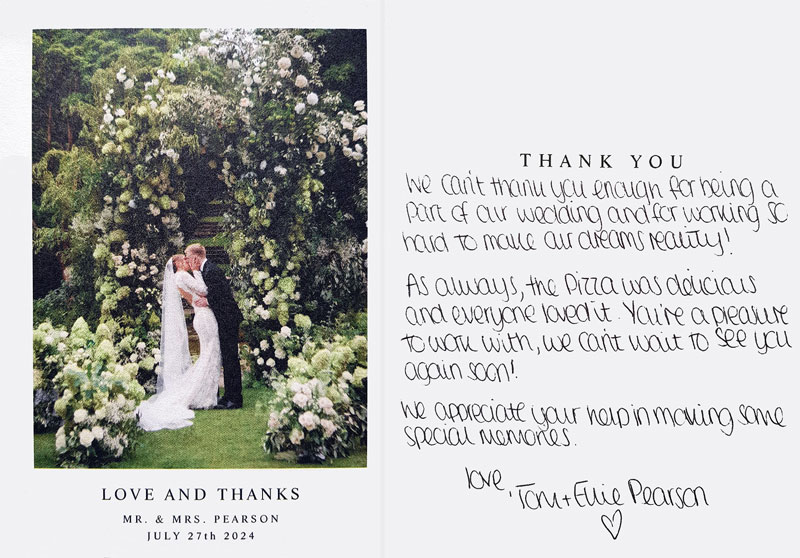 LOVE AND THANKS
MR. & MRS. PEARSON
JULY 27th 2024
THANK YOU
We can't thank you enough for being a
part of our wedding and for working so
hard to make our dreams reality!
As always, the Pizza was delicious
and everyone loved it. You're a pleasure
to work with, we can't wait to see you
again soon!
We appreciate your help in making some
special memories.
love,
Tom + Ellie Pearson